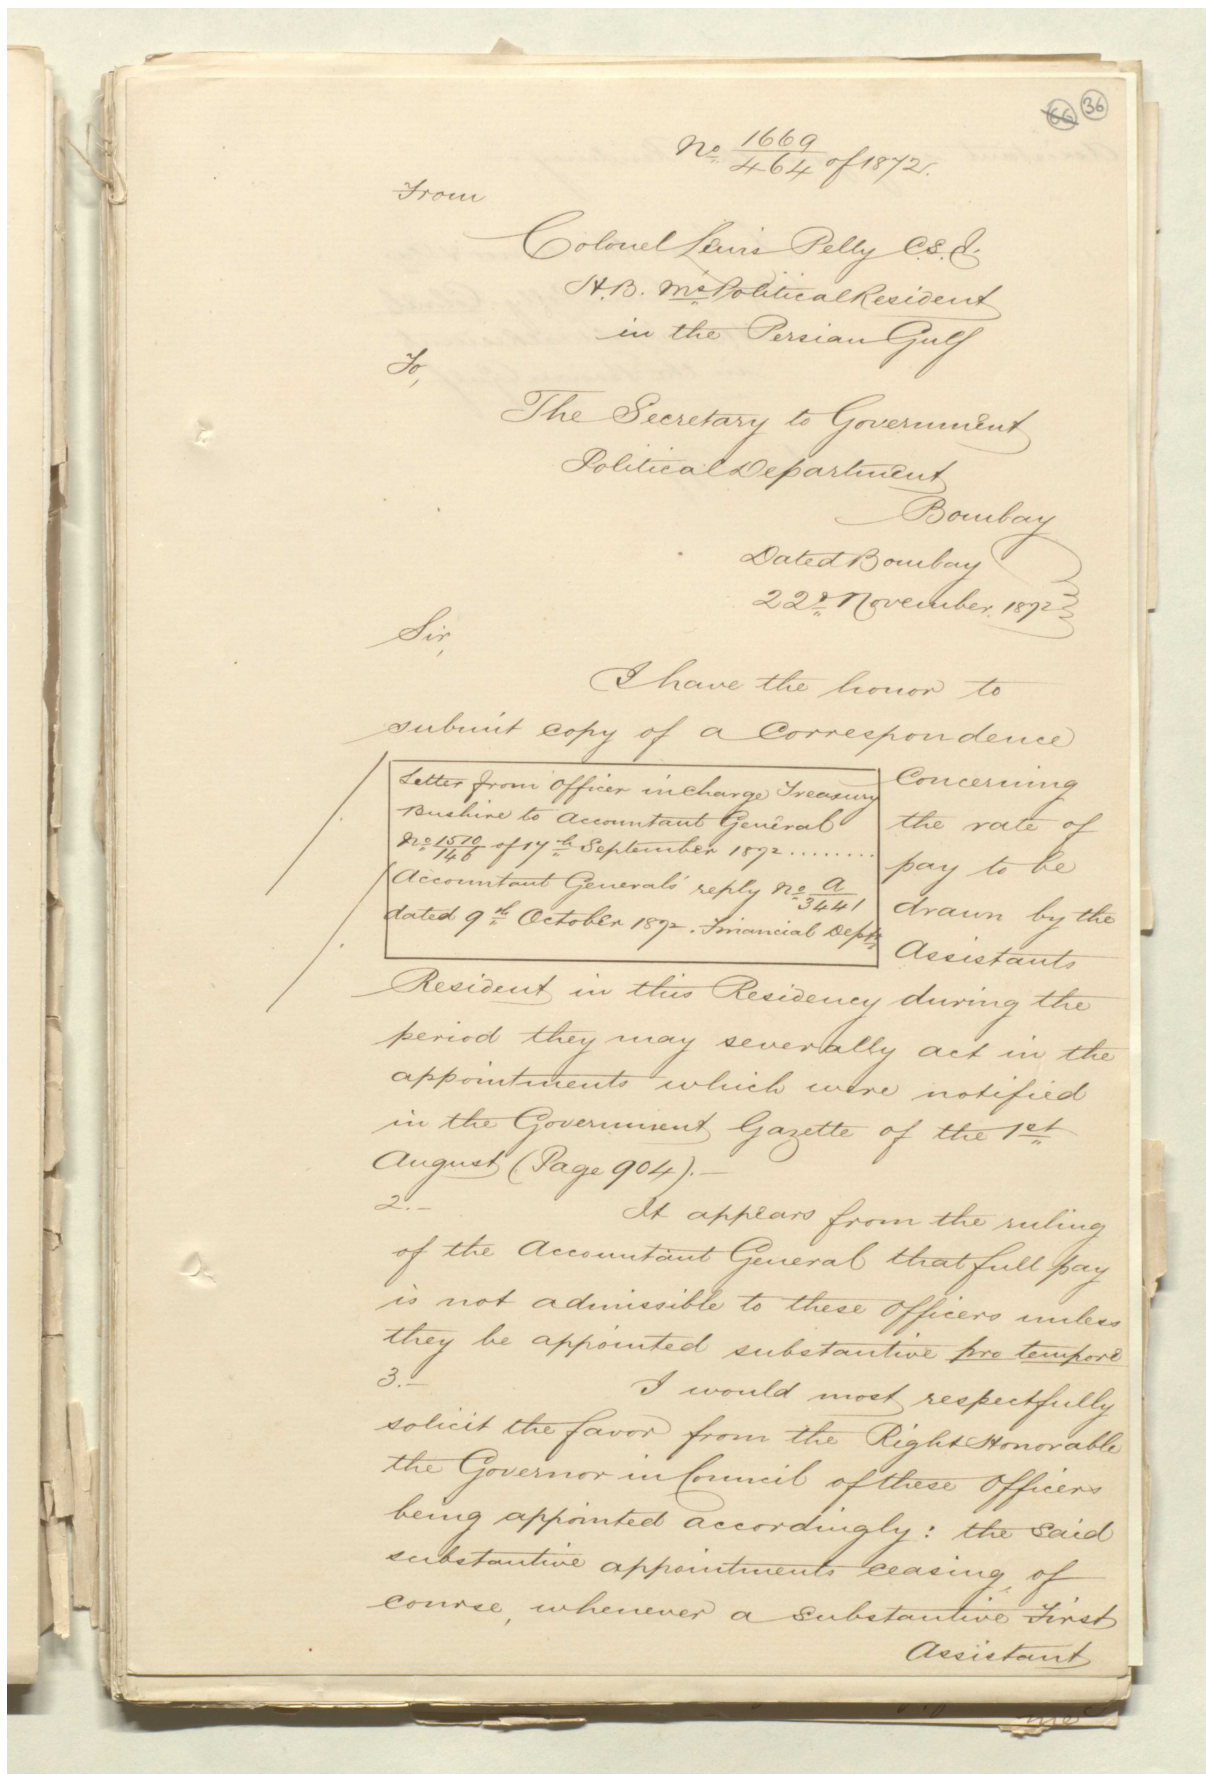 66 36
No 1669/464 of 1872.
From
Colonel Lewis Pelly C.S.I.
H.B. M's Political Resident
in the Persian Gulf
To,
The Secretary to Government
Political Department
Bombay
Dated Bombay
22d November 1872
Sir,
I have the honor to
submit copy of a Correspondence
Letter from Officer in charge Treasury
Bushire to Accountant General
No 1570/146 of 17th September 1872 ........
Accountant General's reply No A/3441
dated 9th October 1872. Financial Dept.
Concerning
the rate of
pay to be
drawn by the
Assistants
Resident in this Residency during the
period they may severally act in the
appointments which were notified
in the Government Gazette of the 1st
August (Page 904).—
2.— It appears from the ruling
of the Accountant General that full pay
is not admissible to these Officers unless
they be appointed substantive pro tempore
3.— I would most respectfully
solicit the favor from the Right Honorable
the Governor in Council of these Officers
being appointed accordingly: the said
substantive appointments ceasing, of
course, whenever a substantive First
Assistant